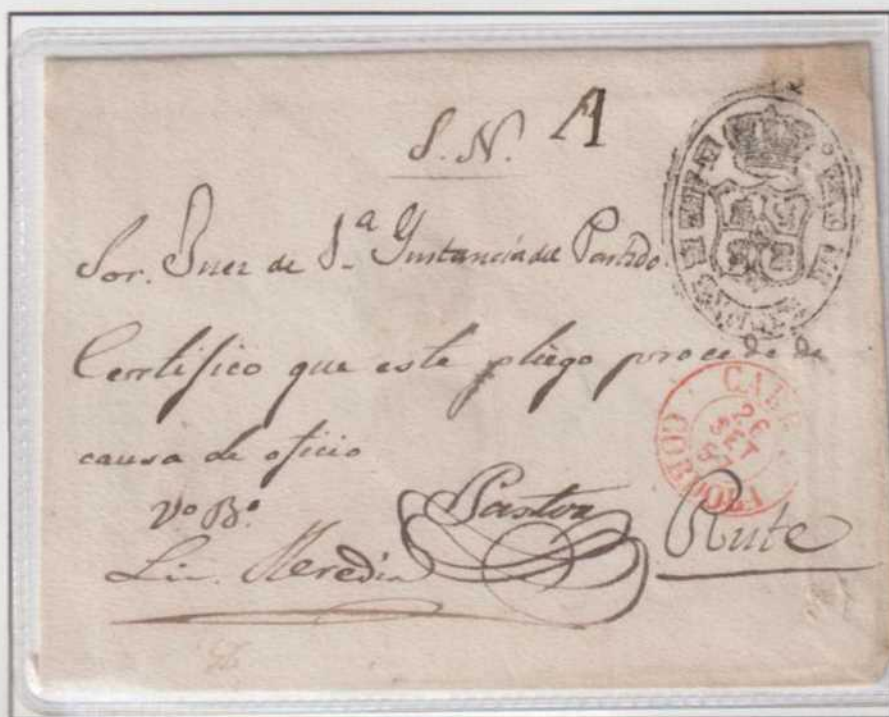 S. N. A
Sor. Juez de 1ª Ynstancia del Partido.
Certifico que este pliego procede de
causa de oficio
Vº Bº Pastor
Lic. Heredia Rute
CABR
26
SET
CORDOBA